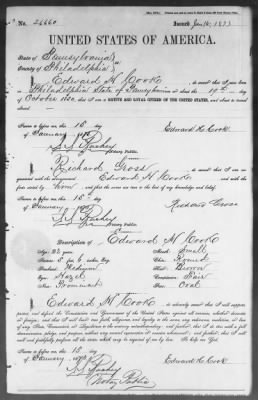 No. 26660
Issued Jan 16, 1873
UNITED STATES OF AMERICA.
State of Pennsylvania
County of Philadelphia
I, Edward H. Cook, do swear that I was born
in Philadelphia State of Pennsylvania on or about the 19th day of
October 1850, that I am a NATIVE AND LOYAL CITIZEN OF THE UNITED STATES, and about to travel
abroad.
Sworn to before me this 15 day
of January 1873
Edward H. Cook
Notary Public.
I, Richard Gross, do swear that I am
acquainted with the above Edward H. Cook and with the
facts stated by him and that the same are true to the best of my knowledge and belief.
Sworn to before me this 15 day
of January 1873
Richard Gross
Notary Public.
Description of Edward H. Cook
Age: 22 years
Stature: 5 feet 6 inches, Eng.
Forehead: Medium
Eyes: Hazel
Nose: Prominent
Mouth: Small
Chin: Round
Hair: Brown
Complexion: Fair
Face: Oval
I, Edward H. Cook, do solemnly swear that I will support,
protect, and defend the Constitution and Government of the United States against all enemies, whether domestic
or foreign; and that I will bear true faith, allegiance, and loyalty to the same, any ordinance, resolution, or law
of any State, Convention, or Legislature to the contrary notwithstanding; and further, that I do this with a full
determination, pledge, and purpose, without any mental reservation or evasion whatsoever; and further, that I will
well and faithfully perform all the duties which may be required of me by law: So help me God.
Sworn to before me this 15 day
of January 1873
Edward H. Cook
Notary Public